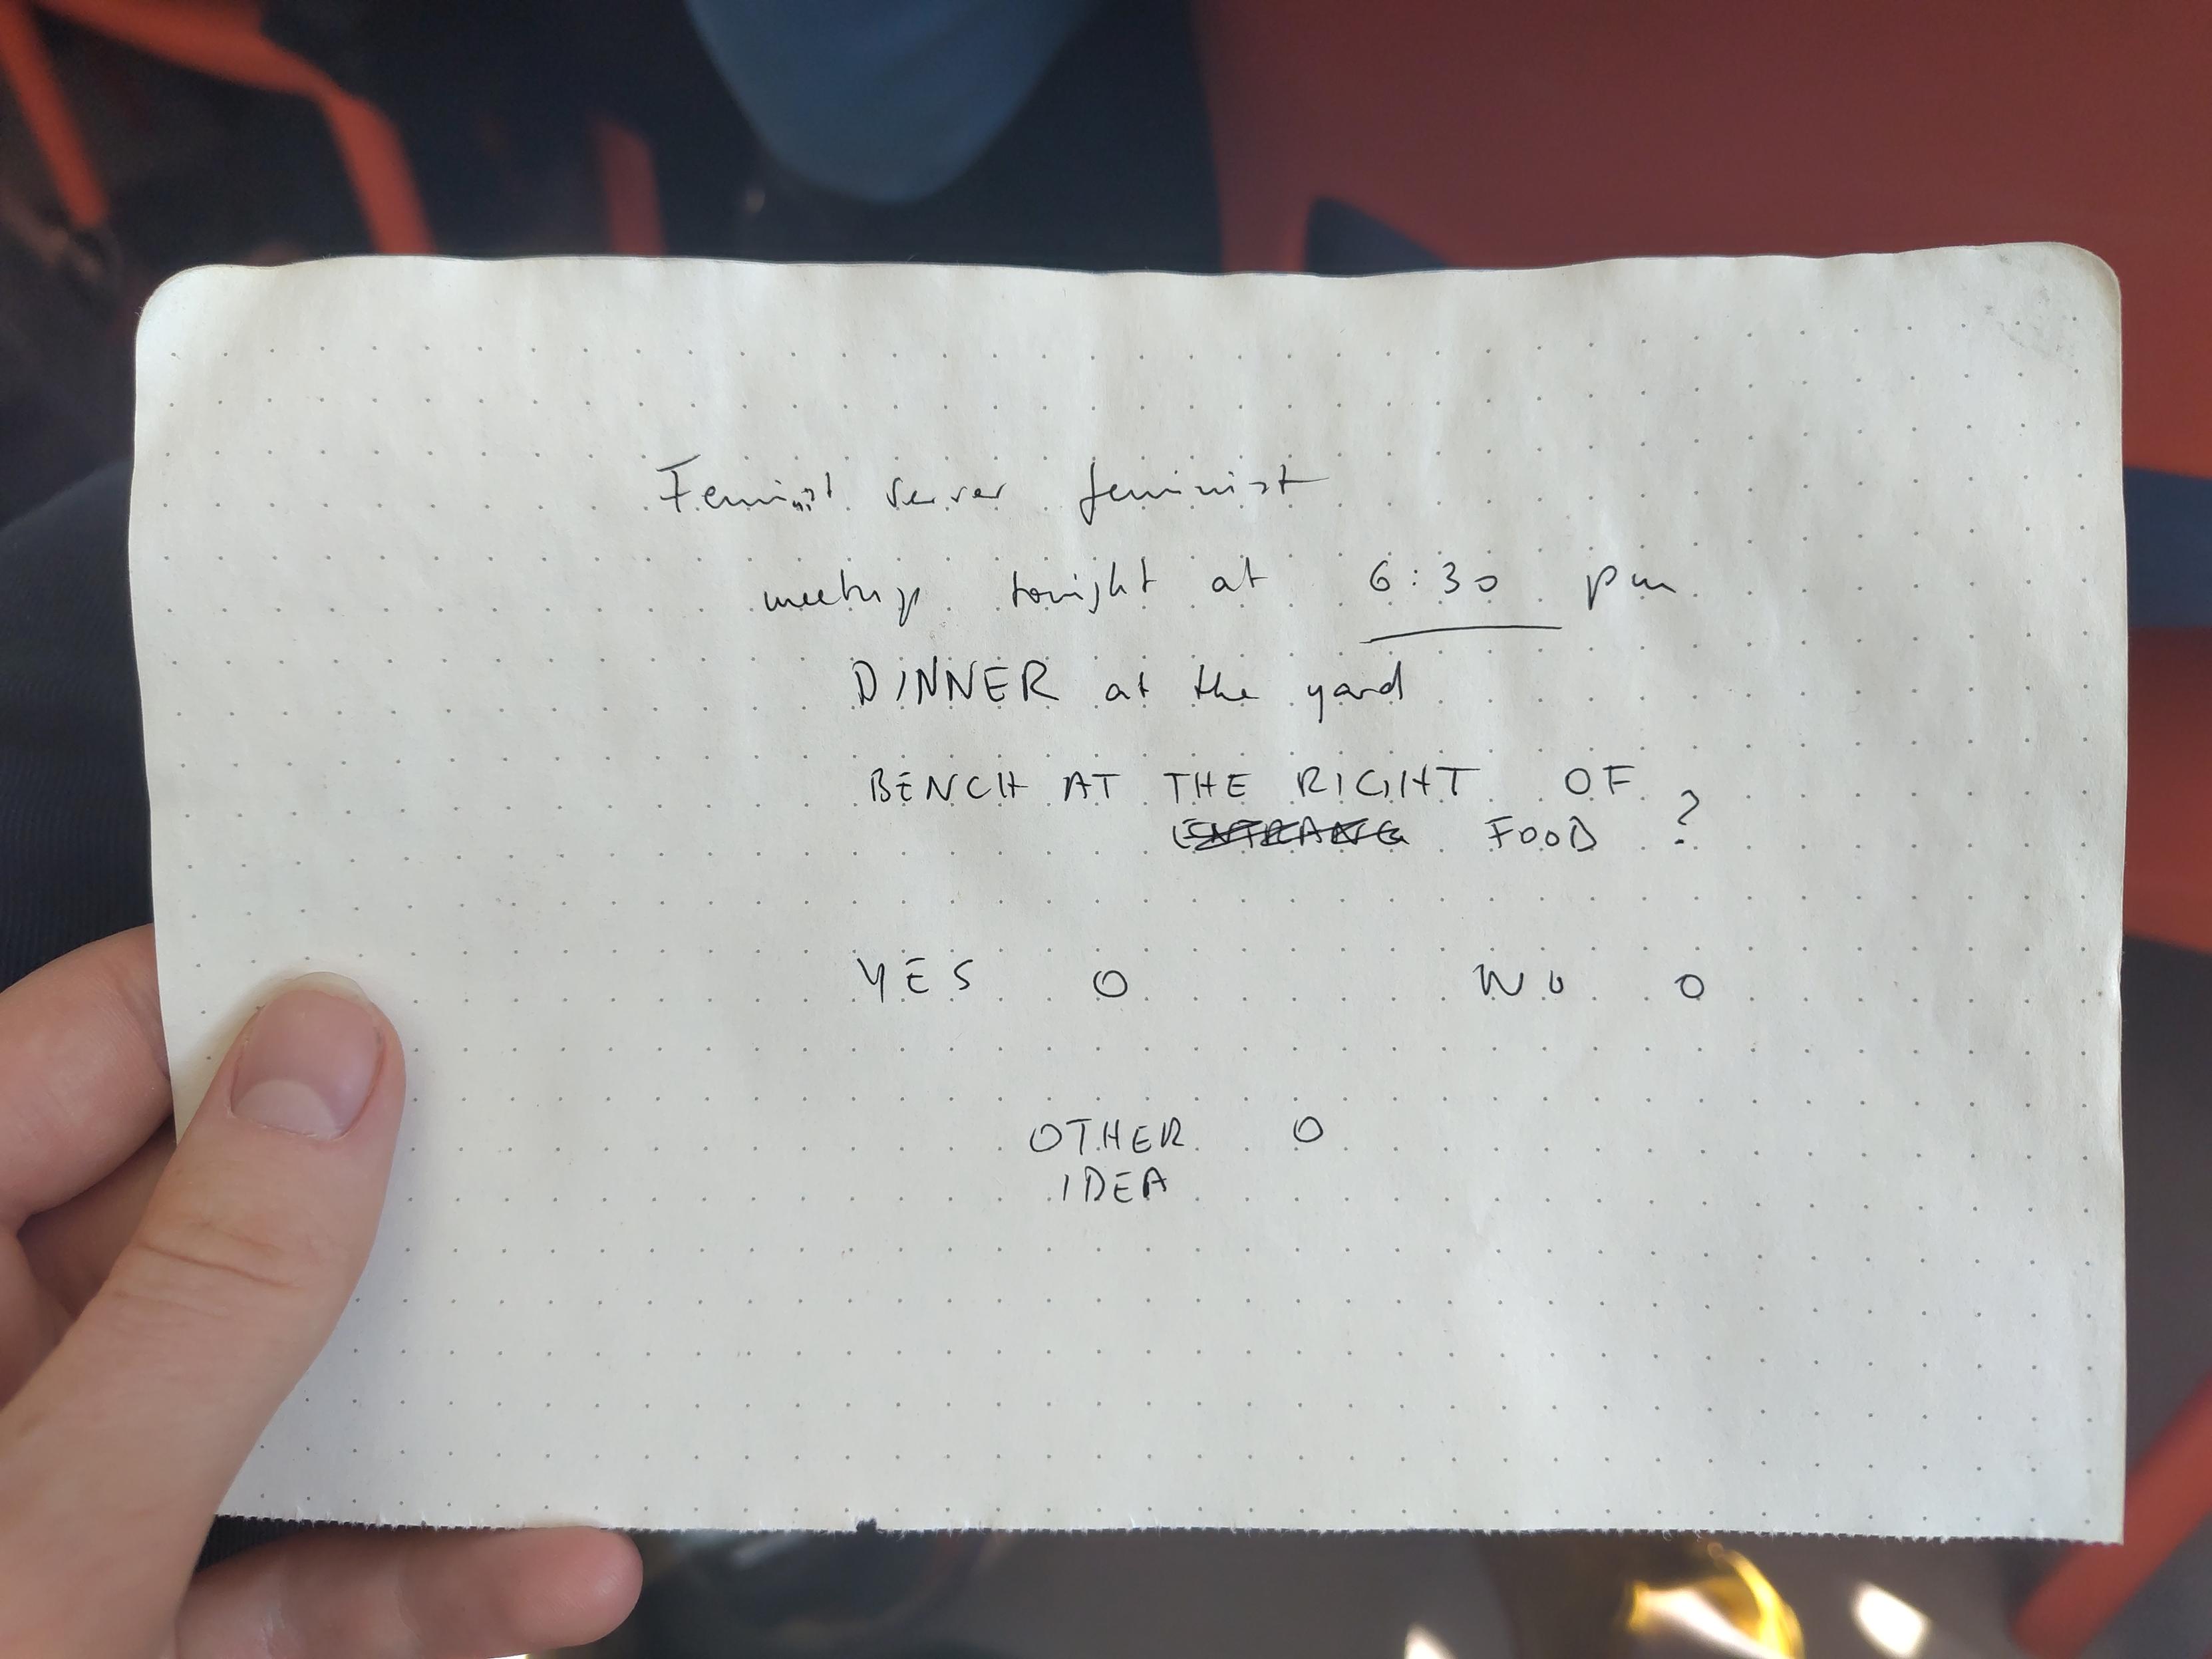 Feminist server feminist
meetup tonight at 6:30 pm
DINNER at the yard
BENCH AT THE RIGHT OF
FOOD ?
YES O NO O
OTHER O
IDEA